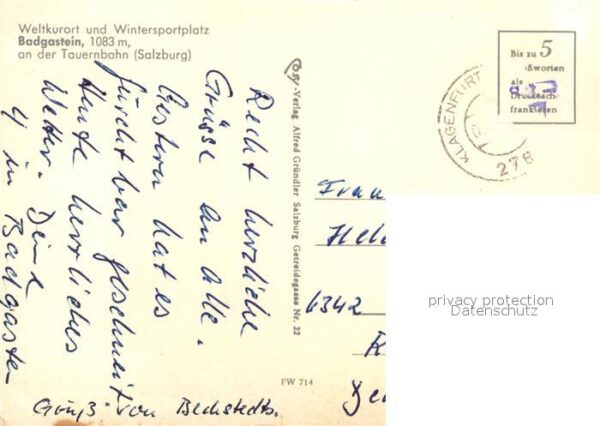 Weltkurort und Wintersportplatz
Badgastein, 1083 m,
an der Tauernbahn (Salzburg)
Recht herzliche
Grüsse an Alle.
Gestern hat es
furchtbar geschneit
Heute herrliches
Wetter. Deine
in Badgastein
Gruß von Bechstedts.
Cosy-Verlag Alfred Gründler Salzburg Getreidegasse Nr. 22
FW 714
Bis zu 5
Grußworten
als
Drucksache
frankieren
KLAGENFURT
278
Frau
Hel
6342
privacy protection
Datenschutz